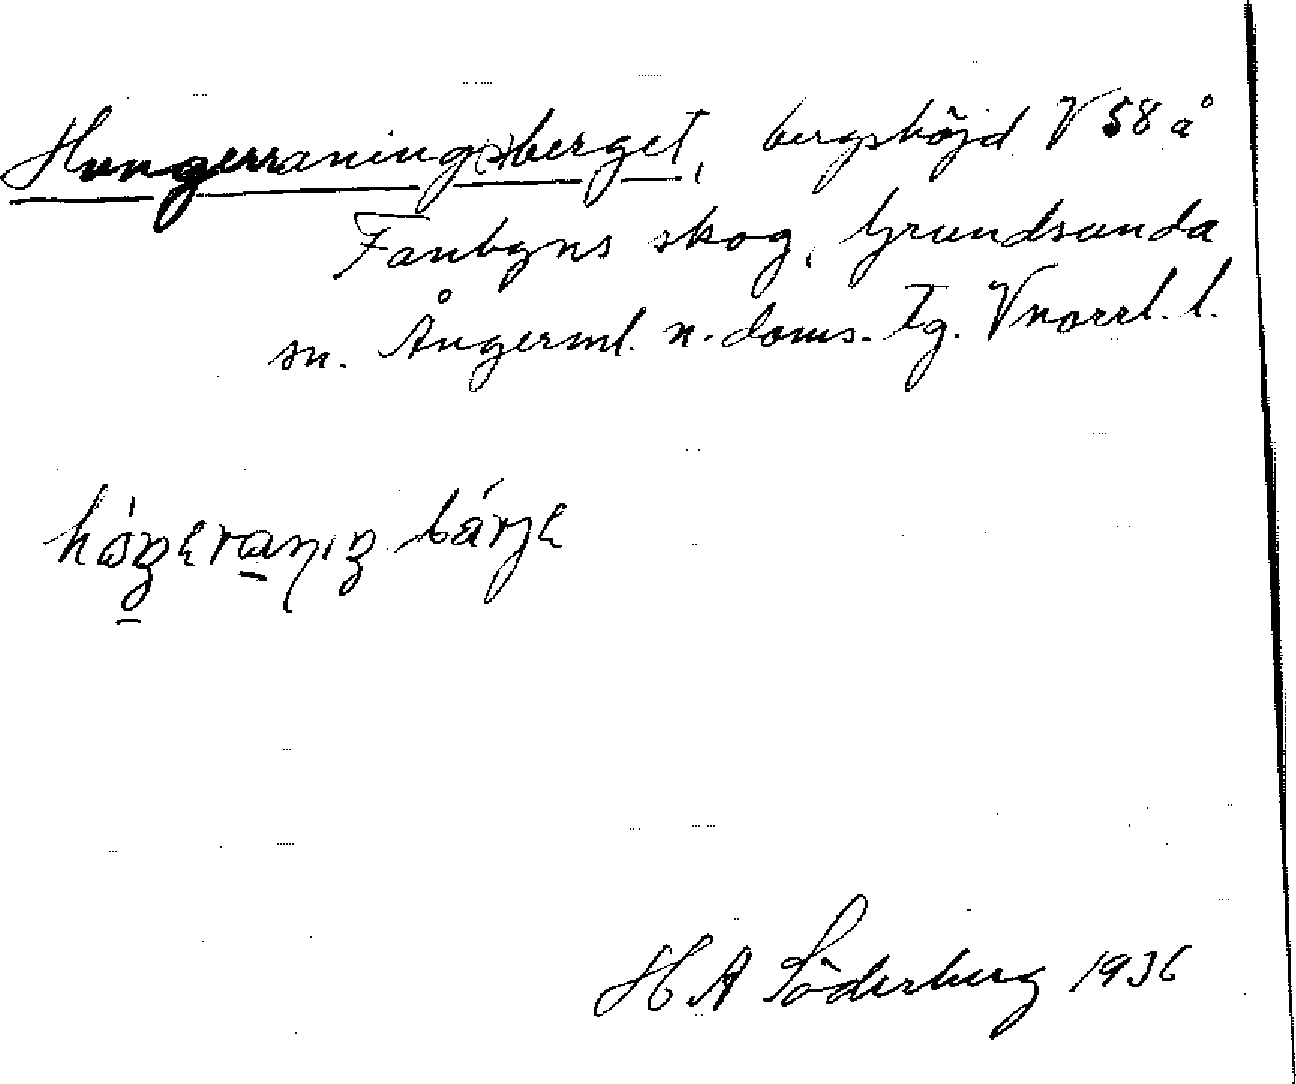 Hungerraning(s)berget, bergshöjd V 58 å
Fanbyns skog, Grundsunda
sn. Ångerml. n. doms. Tg. Vnorrl. l.
H A Söderberg 1936